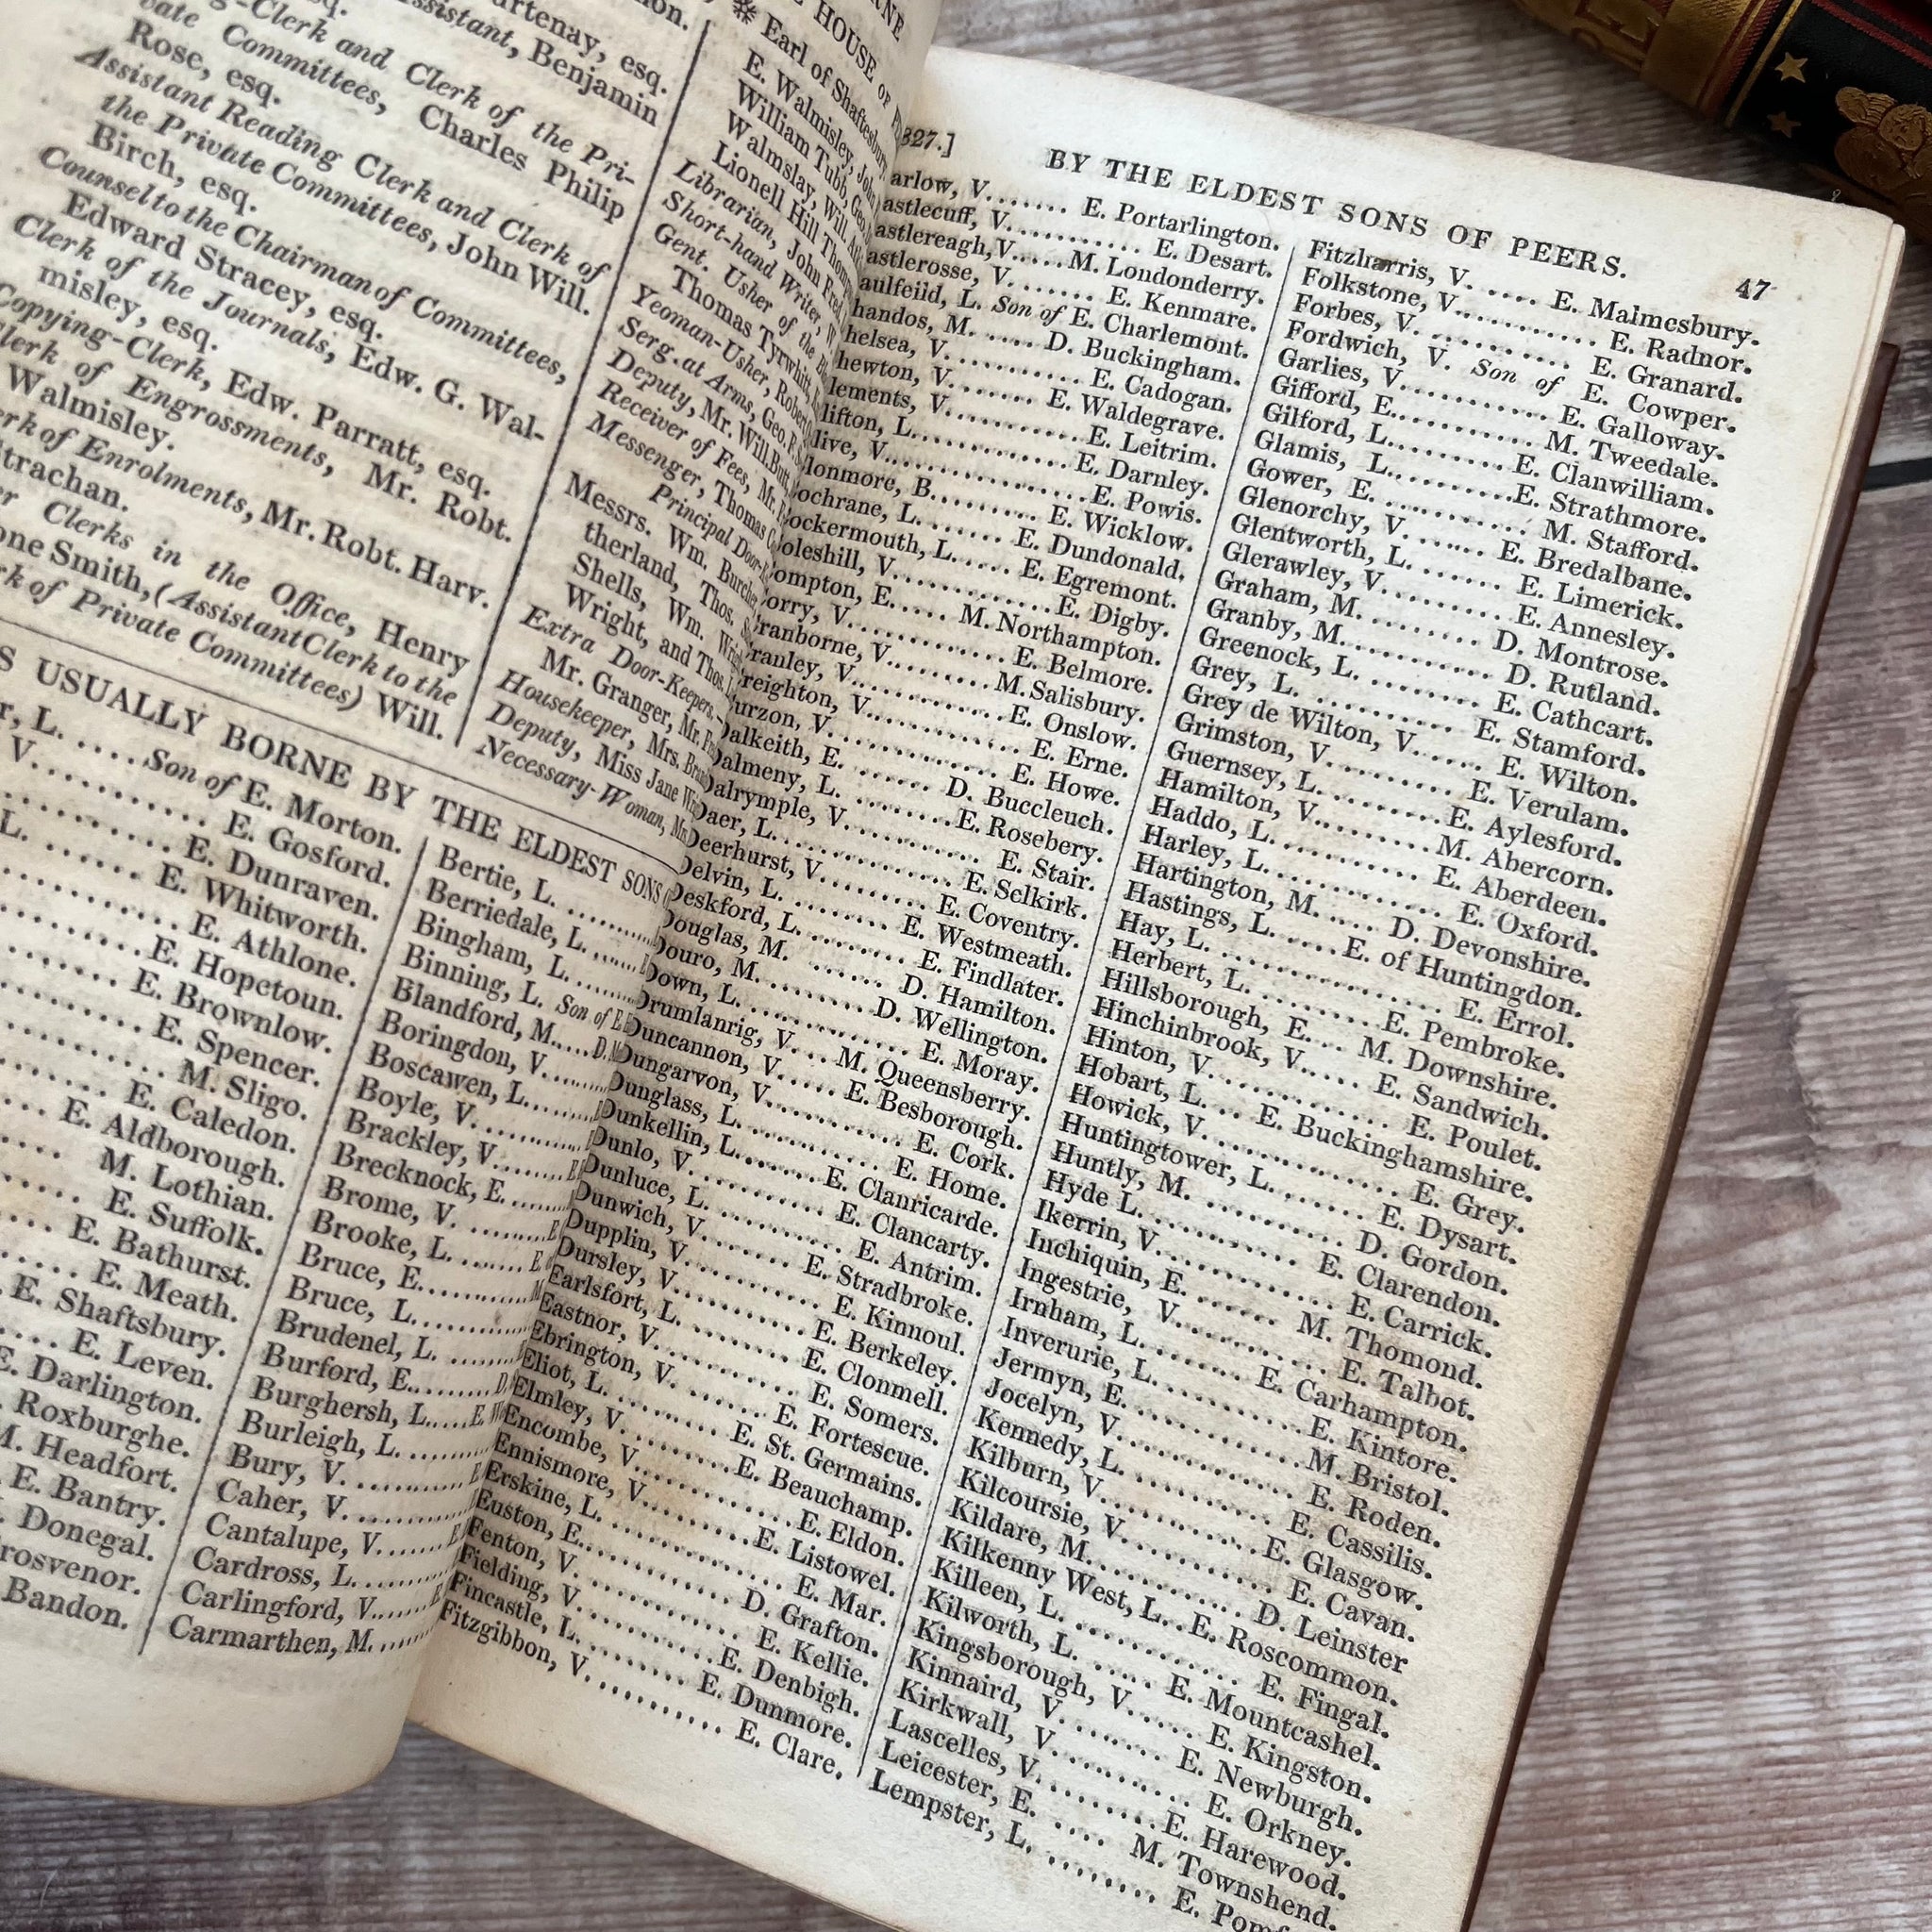 urtenay, esq.
Assistant, Benjamin
Rose, esq.
-Clerk and Clerk of the Pri-
vate Committees, Charles Philip
Assistant Reading Clerk and Clerk of
the Private Committees, John Will.
Birch, esq.
Counsel to the Chairman of Committees,
Edward Stracey, esq.
Clerk of the Journals, Edw. G. Wal-
misley, esq.
Copying-Clerk, Edw. Parratt, esq.
Clerk of Engrossments, Mr. Robt.
Walmisley.
Clerk of Enrolments, Mr. Robt. Harv.
Strachan.
Clerks in the Office, Henry
one Smith, (Assistant Clerk to the
Clerk of Private Committees) Will.
HOUSE OF
Earl of Shaftesbury
E. Walmisley, John
William Tubb, Geo.
Walmslay, Will.
Lionell Hill Thomp
Librarian, John Fred
Short-hand Writer, W
Gent. Usher of the
Thomas Tyrwhitt,
Yeoman-Usher, Robert
Serg. at Arms, Geo. F.
Deputy, Mr. Will. Butt
Receiver of Fees, Mr.
Messenger, Thomas
Principal Door-
Messrs. Wm. Burche
therland, Thos.
Shells, Wm. Wrig
Wright, and Thos.
Extra Door-Keepers.
Mr. Granger, Mr.
Housekeeper, Mrs.
Deputy, Miss Jane
Necessary-Woman,
S USUALLY BORNE BY THE ELDEST SONS
r, L. ..... Son of E. Morton.
V. ........ E. Gosford.
E. Dunraven.
L. ...... E. Whitworth.
E. Athlone.
E. Hopetoun.
E. Brownlow.
E. Spencer.
M. Sligo.
E. Caledon.
E. Aldborough.
M. Lothian.
E. Suffolk.
E. Bathurst.
E. Meath.
E. Shaftsbury.
E. Leven.
E. Darlington.
Roxburghe.
M. Headfort.
E. Bantry.
Donegal.
rosvenor.
Bandon.
Bertie, L. ........
Berriedale, L. ......
Bingham, L. ........
Binning, L. Son of E
Blandford, M. .... D.
Boringdon, V. .......
Boscawen, L. ........
Boyle, V. ...........
Brackley, V. ........
Brecknock, E. .......
Brome, V. .........
Brooke, L. ........ E
Bruce, E. ...........
Bruce, L. ...........
Brudenel, L. ........
Burford, E. ......... D.
Burghersh, L. .... E. W
Burleigh, L. ........
Bury, V. ...........
Caher, V. ..........
Cantalupe, V. ....... E.
Cardross, L. .........
Carlingford, V. ...... E
Carmarthen, M. .......
827.]
BY THE ELDEST SONS OF PEERS.
47
arlow, V. ....... E. Portarlington.
astlecuff, V. ........... E. Desart.
astlereagh, V. .... M. Londonderry.
astlerosse, V. ....... E. Kenmare.
aulfeild, L. Son of E. Charlemont.
handos, M. ..... D. Buckingham.
helsea, V. .......... E. Cadogan.
hewton, V. ....... E. Waldegrave.
lements, V. .......... E. Leitrim.
lifton, L. ............ E. Darnley.
live, V. .............. E. Powis.
lonmore, B. ......... E. Wicklow.
ochrane, L. ....... E. Dundonald.
ockermouth, L. ..... E. Egremont.
oleshill, V. ........... E. Digby.
ompton, E. .... M. Northampton.
orry, V. ............ E. Belmore.
ranborne, V. ....... M. Salisbury.
ranley, V. ........... E. Onslow.
reighton, V. ........... E. Erne.
urzon, V. ............. E. Howe.
Dalkeith, E. ...... D. Buccleuch.
Dalmeny, L. ........ E. Rosebery.
Dalrymple, V. .......... E. Stair.
Daer, L. ............. E. Selkirk.
Deerhurst, V. ........ E. Coventry.
Delvin, L. ........ E. Westmeath.
Deskford, L. ........ E. Findlater.
Douglas, M. ...... D. Hamilton.
Douro, M. ......... D. Wellington.
Down, L. ............. E. Moray.
Drumlanrig, V. ... M. Queensberry.
Duncannon, V. ..... E. Besborough.
Dungarvon, V. .......... E. Cork.
Dunglass, L. ........... E. Home.
Dunkellin, L. ....... E. Clanricarde.
Dunlo, V. .......... E. Clancarty.
Dunluce, L. ........... E. Antrim.
Dunwich, V. ........ E. Stradbroke.
Dupplin, V. .......... E. Kinnoul.
Dursley, V. .......... E. Berkeley.
Earlsfort, L. ......... E. Clonmell.
Eastnor, V. .......... E. Somers.
Ebrington, V. ....... E. Fortescue.
Eliot, L. ........ E. St. Germains.
Elmley, V. ........ E. Beauchamp.
Encombe, V. ........... E. Eldon.
Ennismore, V. ........ E. Listowel.
Erskine, L. ............. E. Mar.
Euston, E. .......... D. Grafton.
Fenton, V. ............ E. Kellie.
Fielding, V. .......... E. Denbigh.
Fincastle, L. ......... E. Dunmore.
Fitzgibbon, V. .......... E. Clare.
Fitzharris, V. ..... E. Malmesbury.
Folkstone, V. ........... E. Radnor.
Forbes, V. ............ E. Granard.
Fordwich, V. Son of E. Cowper.
Garlies, V. .......... E. Galloway.
Gifford, E. .......... M. Tweedale.
Gilford, L. ........ E. Clanwilliam.
Glamis, L. ......... E. Strathmore.
Gower, E. ............ M. Stafford.
Glenorchy, V. ...... E. Bredalbane.
Glentworth, L. ....... E. Limerick.
Glerawley, V. ......... E. Annesley.
Graham, M. ......... D. Montrose.
Granby, M. ........... D. Rutland.
Greenock, L. ......... E. Cathcart.
Grey, L. ............ E. Stamford.
Grey de Wilton, V. ...... E. Wilton.
Grimston, V. ......... E. Verulam.
Guernsey, L. ........ E. Aylesford.
Hamilton, V. ........ M. Abercorn.
Haddo, L. ........... E. Aberdeen.
Harley, L. ............. E. Oxford.
Hartington, M. .... D. Devonshire.
Hastings, L. ..... E. of Huntingdon.
Hay, L. ................ E. Errol.
Herbert, L. ......... E. Pembroke.
Hillsborough, E. ... M. Downshire.
Hinchinbrook, V. ..... E. Sandwich.
Hinton, V. ............ E. Poulet.
Hobart, L. ... E. Buckinghamshire.
Howick, V. .............. E. Grey.
Huntingtower, L. ....... E. Dysart.
Huntly, M. ........... D. Gordon.
Hyde L. ............ E. Clarendon.
Ikerrin, V. ........... E. Carrick.
Inchiquin, E. ....... M. Thomond.
Ingestrie, V. ........... E. Talbot.
Irnham, L. ........ E. Carhampton.
Inverurie, L. .......... E. Kintore.
Jermyn, E. ........... M. Bristol.
Jocelyn, V. ............ E. Roden.
Kennedy, L. .......... E. Cassilis.
Kilburn, V. .......... E. Glasgow.
Kilcoursie, V. .......... E. Cavan.
Kildare, M. .......... D. Leinster
Kilkenny West, L. .. E. Roscommon.
Killeen, L. ............ E. Fingal.
Kilworth, L. ..... E. Mountcashel.
Kingsborough, V. ...... E. Kingston.
Kinnaird, V. ....... E. Newburgh.
Kirkwall, V. .......... E. Orkney.
Lascelles, V. ........ E. Harewood.
Leicester, E. .... M. Townshend.
Lempster, L. ......... E. Pomf